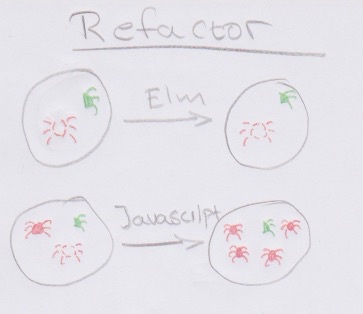 Refactor
Elm
Javascript